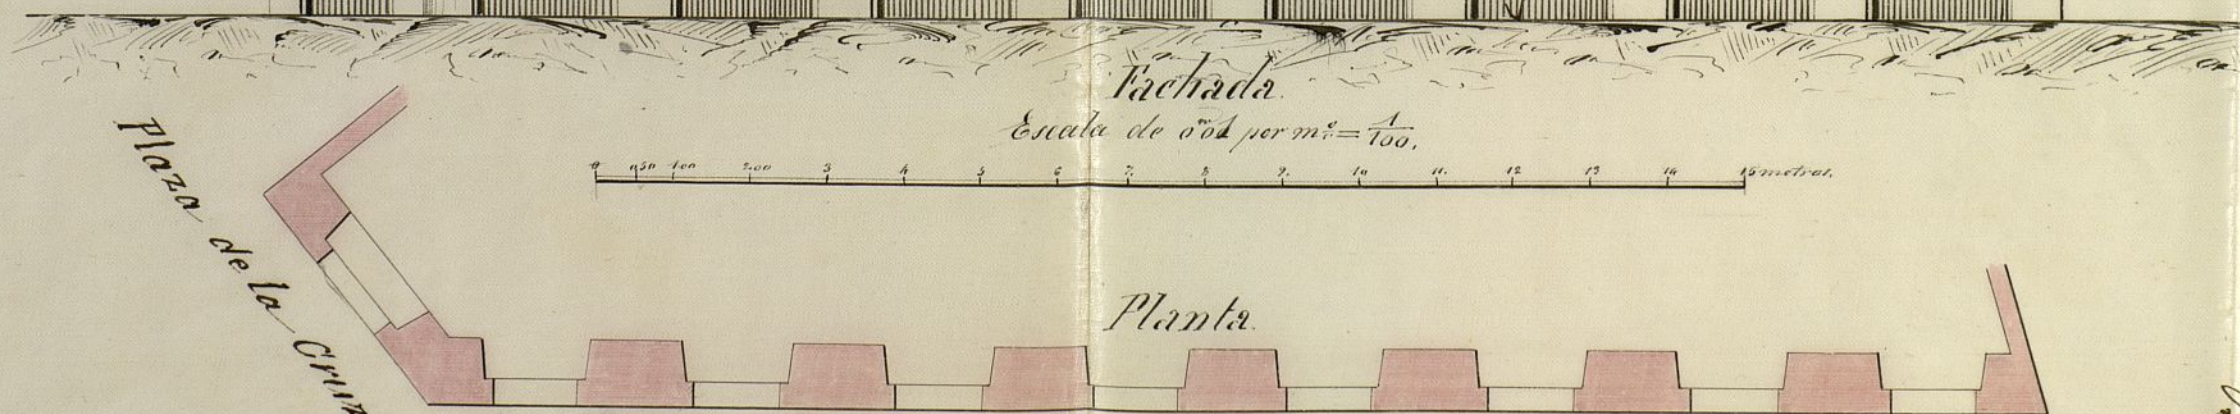 Fachada.
Escala de 0ᵐ01 por m.º = 1/100.
0 0,50 1.00 2.00 3 4 5 6 7. 8 9. 10 11. 12 13 14 15 metros.
Plaza de la Cruz
Planta.